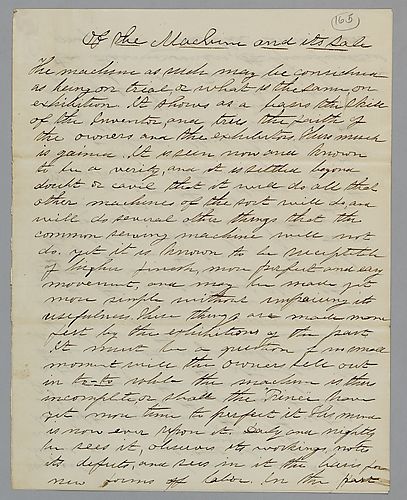 165
Of the Machine and its Sale
The machine as such may be considered
as being on trial, or what is the same on
exhibition. It shows as a the
of the Inventor and tries the faith of
the owners and the exhibitors. Thus much
is gained. It is seen now and known
to be a verity, and it is settled beyond
doubt or cavil that it will do all that
other machines of the sort will do, and
will do several other things that the
common sewing machine will not
do. yet it is known to be susceptible
of higher finish, more perfect and easy
movement, and may be made yet
more simple without impairing its
usefulness. These things are made mani
fest by the exhibitions of the past.
It must be a question of
moment will the owner sell out
in to-to while the machine is thus
incomplete, or shall the have
yet more time to perfect it. His mind
is now ever upon it. Daily and nightly
he sees it, observes its workings, notes
its defects, and sees in it the basis for
new forms of labor. In the past